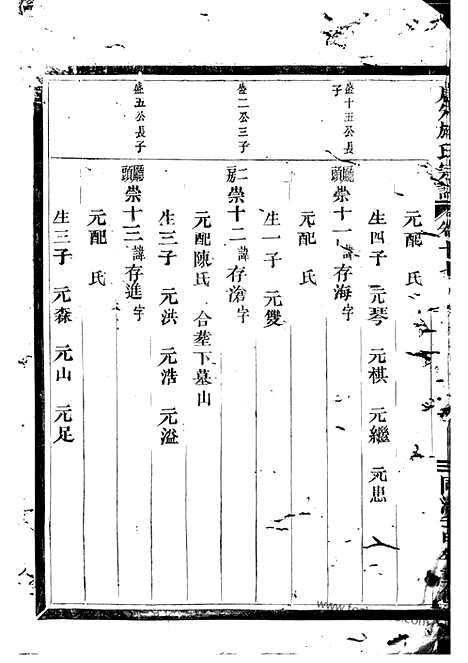 元配 氏
生四子 元琴 元棋 元繼 元忠
盛十五公長子
廳頭崇十一諱存海字
元配 氏
生一子 元雙
盛二公三子
二房崇十二諱存滄字
元配陳氏 合葬下墓山
生三子 元洪 元浩 元溢
盛五公長子
廳頭崇十三諱存進字
元配 氏
生三子 元森 元山 元足